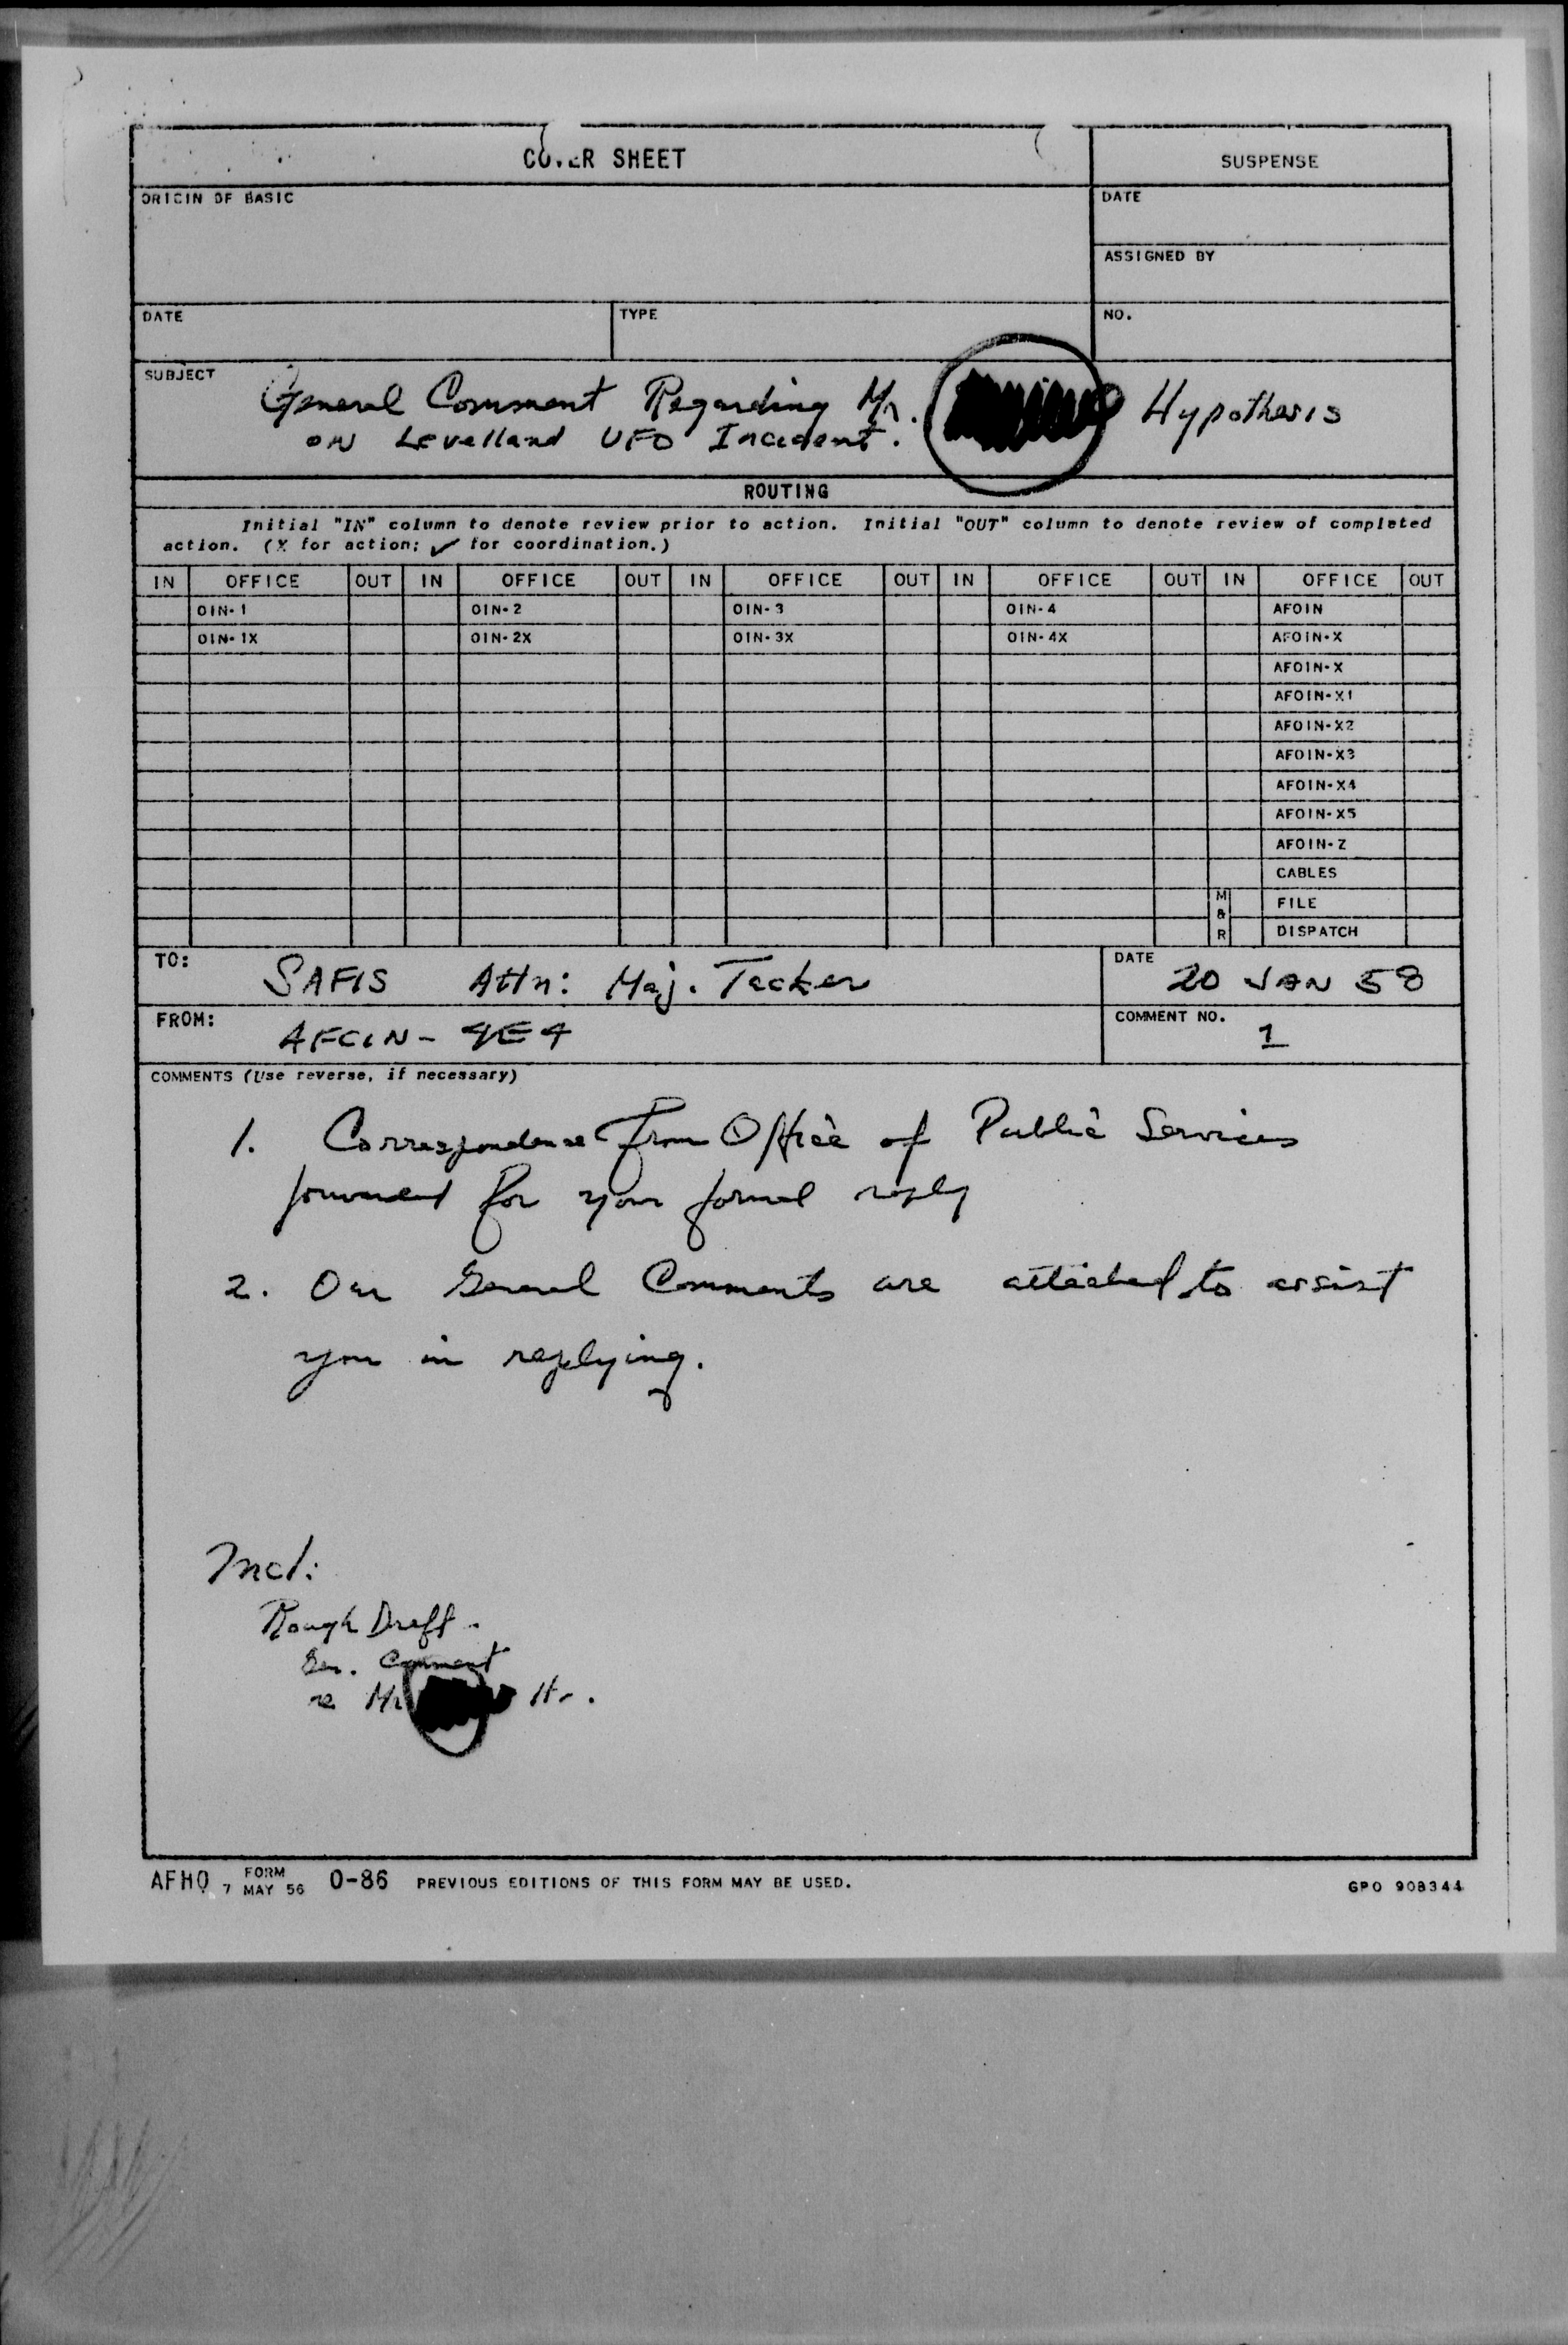 COVER SHEET
SUSPENSE
ORIGIN OF BASIC
DATE
ASSIGNED BY
DATE
TYPE
NO.
SUBJECT
General Comment Regarding Mr. Hypothesis
on Levelland UFO Incident.
ROUTING
Initial "IN" column to denote review prior to action. Initial "OUT" column to denote review of completed
action. (X for action; ✓ for coordination.)
IN OFFICE OUT IN OFFICE OUT IN OFFICE OUT IN OFFICE OUT IN OFFICE OUT
OIN-1 OIN-2 OIN-3 OIN-4 AFOIN
OIN-1X OIN-2X OIN-3X OIN-4X AFOIN-X
AFOIN-X
AFOIN-X1
AFOIN-X2
AFOIN-X3
AFOIN-X4
AFOIN-X5
AFOIN-Z
CABLES
M & R FILE
DISPATCH
TO: SAFIS Attn: Maj. Tacker
DATE 20 JAN 58
FROM: AFCIN-4E4
COMMENT NO. 1
COMMENTS (Use reverse, if necessary)
1. Correspondence from Office of Public Services
forwarded for your formal reply
2. Our General Comments are attached to assist
you in replying.
Incl:
Rough Draft.
Gen. Comment
re Mr H.
AFHQ FORM 7 MAY 56 0-86 PREVIOUS EDITIONS OF THIS FORM MAY BE USED.
GPO 908344